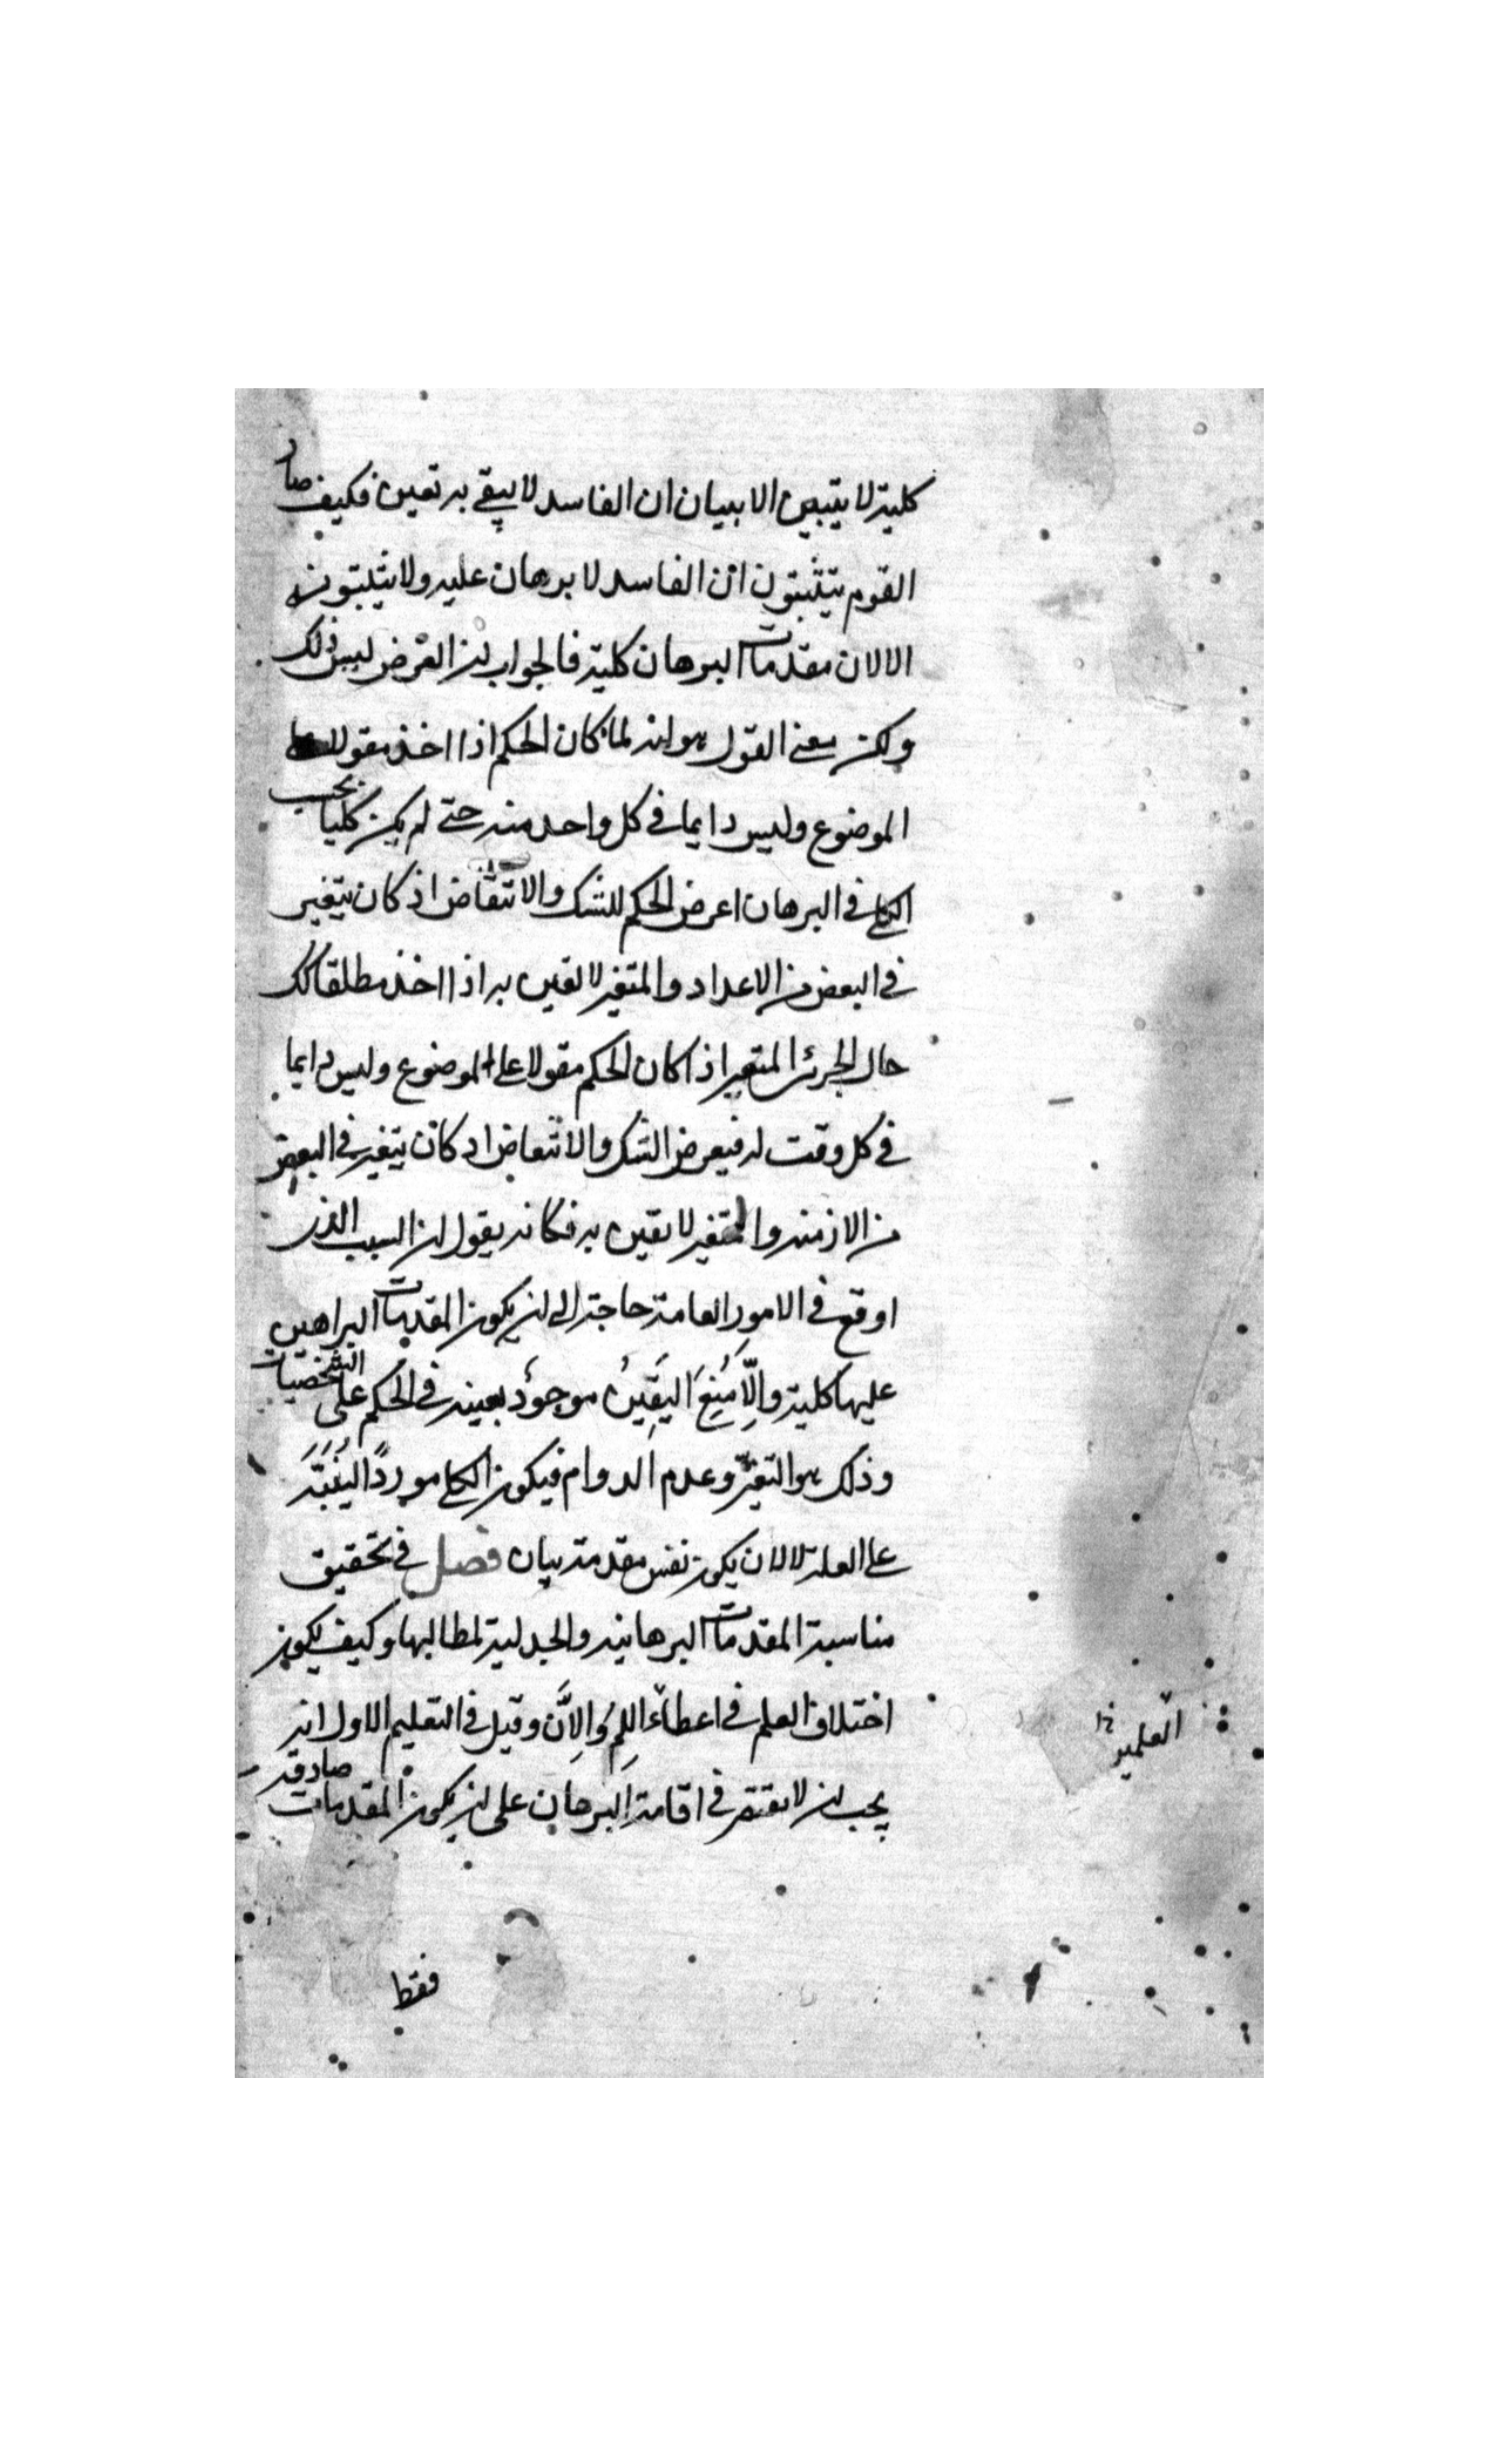 كلية لا يتبين الا ببيان ان الفاسد لا يبقي به يقين فكيف صار
القوم يتثبتون ان الفاسد لا برهان عليه ولا يثبتون
الا لان مقدمات البرهان كلية فالجواب ان الغرض ليس ذلك
ولكن معنى القول هو انه لما كان الحكم اذا اخذ مقولا على
الموضوع وليس دايما في كل واحد منه حتى لم يكن كليا بحسب
الكلي في البرهان اعرض الحكم للشك والانتقاض اذ كان يتغير
في البعض من الاعداد والمتغير لا يقين به اذا اخذ مطلقا كذلك
حال الجزئي المتغير اذا كان الحكم مقولا على الموضوع وليس دايما
في كل وقت له فيعرض الشك والانتقاض اذ كان يتغير في البعض
من الازمنه والمتغير لا يقين به فكانه يقول ان السبب الذي
اوقع في الامور العامة حاجة الى ان يكون المقدمات البراهين
عليها كلية والا منع اليقين موجود بعينه في الحكم على الشخصيات
وذلك هو التغير وعدم الدوام فيكون الكلي موردا لينبه
على العلة لا لان يكون نفس مقدمة بيان فصل في تحقيق
مناسبة المقدمات البرهانيه والجدلية لمطالبها وكيف يكون
اختلاف العلم في اعطاء اللم والان وقيل في التعليم الاول انه
يجب ان لا يقتصر في اقامة البرهان على ان يكون المقدمات صادقه
العلمين
فقط